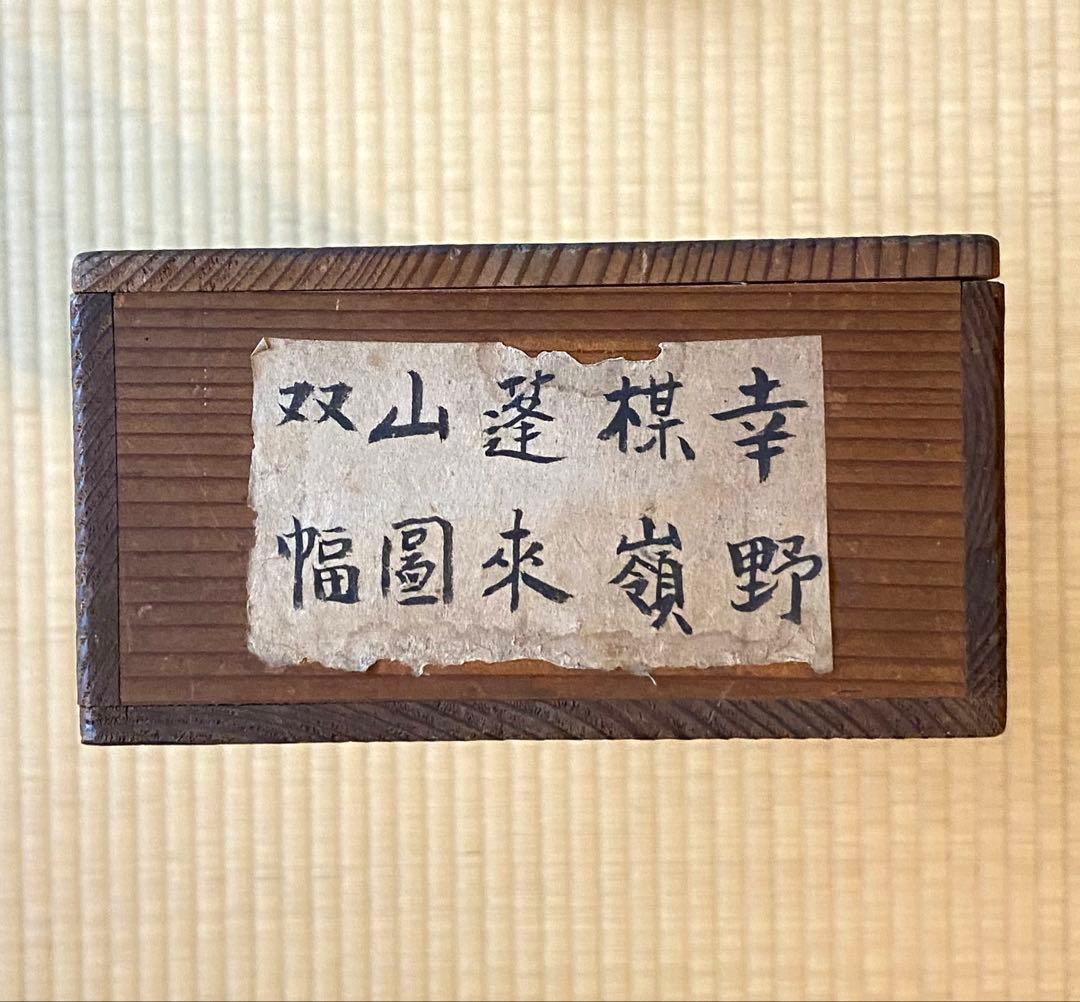 幸野
楳嶺
蓬来
山圖
双幅